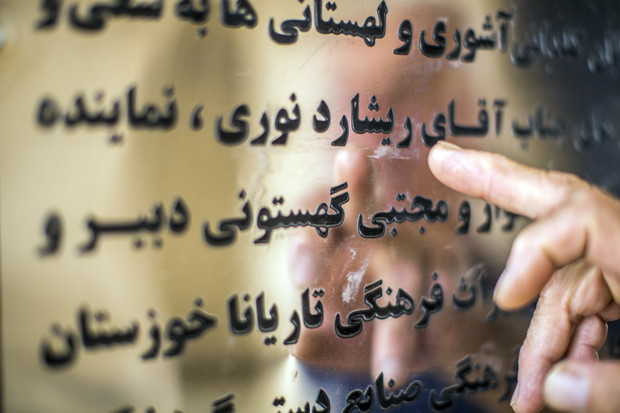 آشوری و لهستانی ها به سعی و
جناب آقای ریشارد نوری ، نماینده
و مجتبی گهستونی دبیر و
فرهنگی تاریانا خوزستان
فرهنگی صنایع دستی